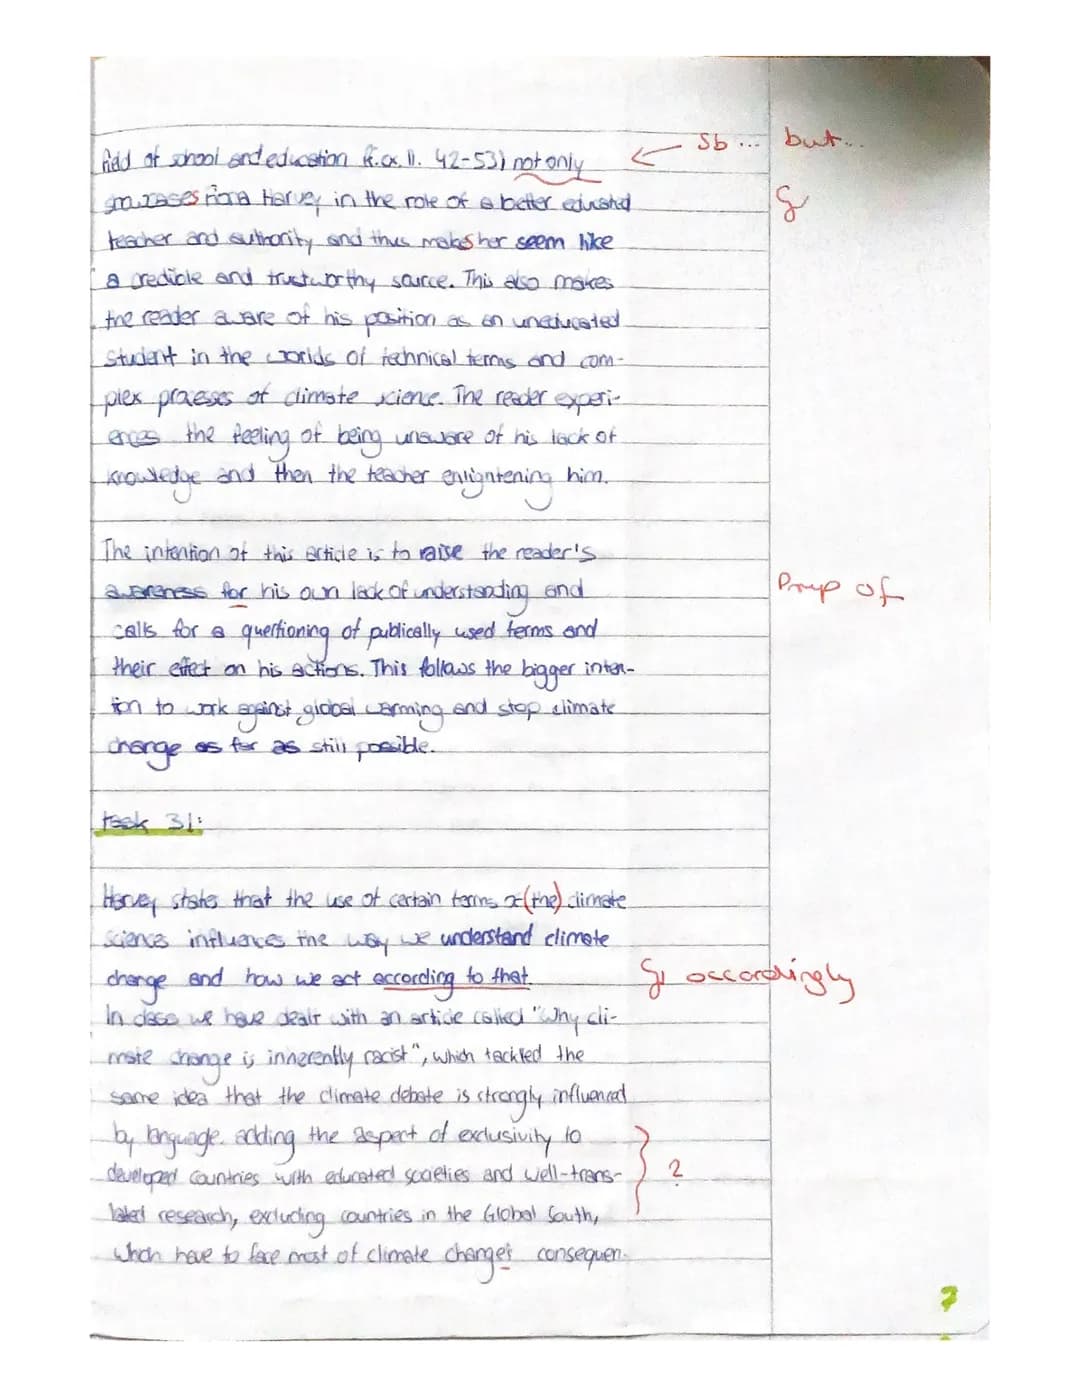 field of school and education (f. ex. ll. 42-53) not only Sb... but...
Fiona Harvey in the role of a better educated
teacher and authority and thus makes her seem like
a credible and trustworthy source. This also makes
the reader aware of his position as an uneducated
student in the worlds of technical terms and com-
plex processes of climate science. The reader experi-
ences the feeling of being unaware of his lack of
knowledge and then the teacher enlightening him.
The intention of this article is to raise the reader's
awareness for his own lack of understanding and Präp of
calls for a questioning of publically used terms and
their effect on his actions. This follows the bigger inten-
tion to work against global warming and stop climate
change as far as still possible.
task 3):
Harvey states that the use of certain terms of (the) climate
sciences influences the way we understand climate
change and how we act according to that. accordingly
In class we have dealt with an article called "Why cli-
mate change is inherently racist", which tackled the
same idea that the climate debate is strongly influenced
by language. adding the aspect of exclusivity to
developed countries with educated societies and well-trans- ?
lated research, excluding countries in the Global South,
which have to face most of climate change's consequen-
7